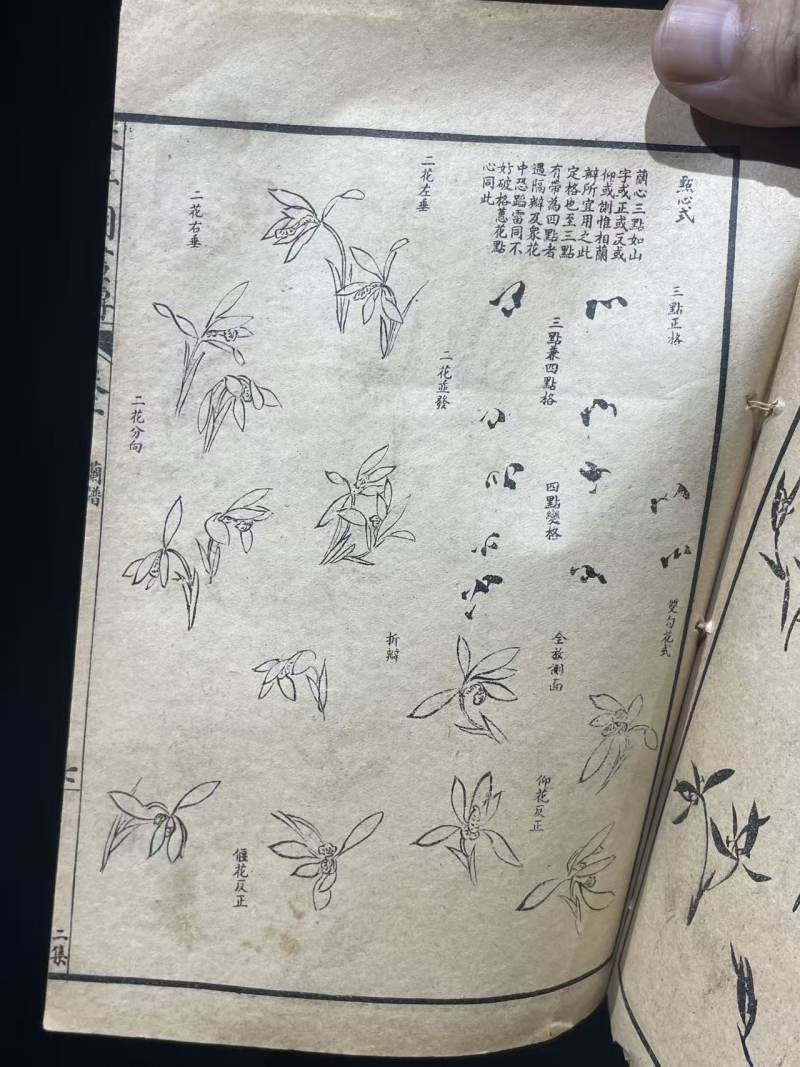 點心式
蘭心三點如山
字或正或反或
仰或側惟相蘭
瓣所宜用之此
定格也至三點
有帶為四點者
遇隔瓣及眾花
中恐蹈雷同不
妨破格蕙花點
心同此
三點正格
三點兼四點格
四點變格
雙勾花式
全放側面
仰花反正
二花左垂
二花並發
折瓣
二花右垂
二花分向
偃花反正
蘭譜
二集